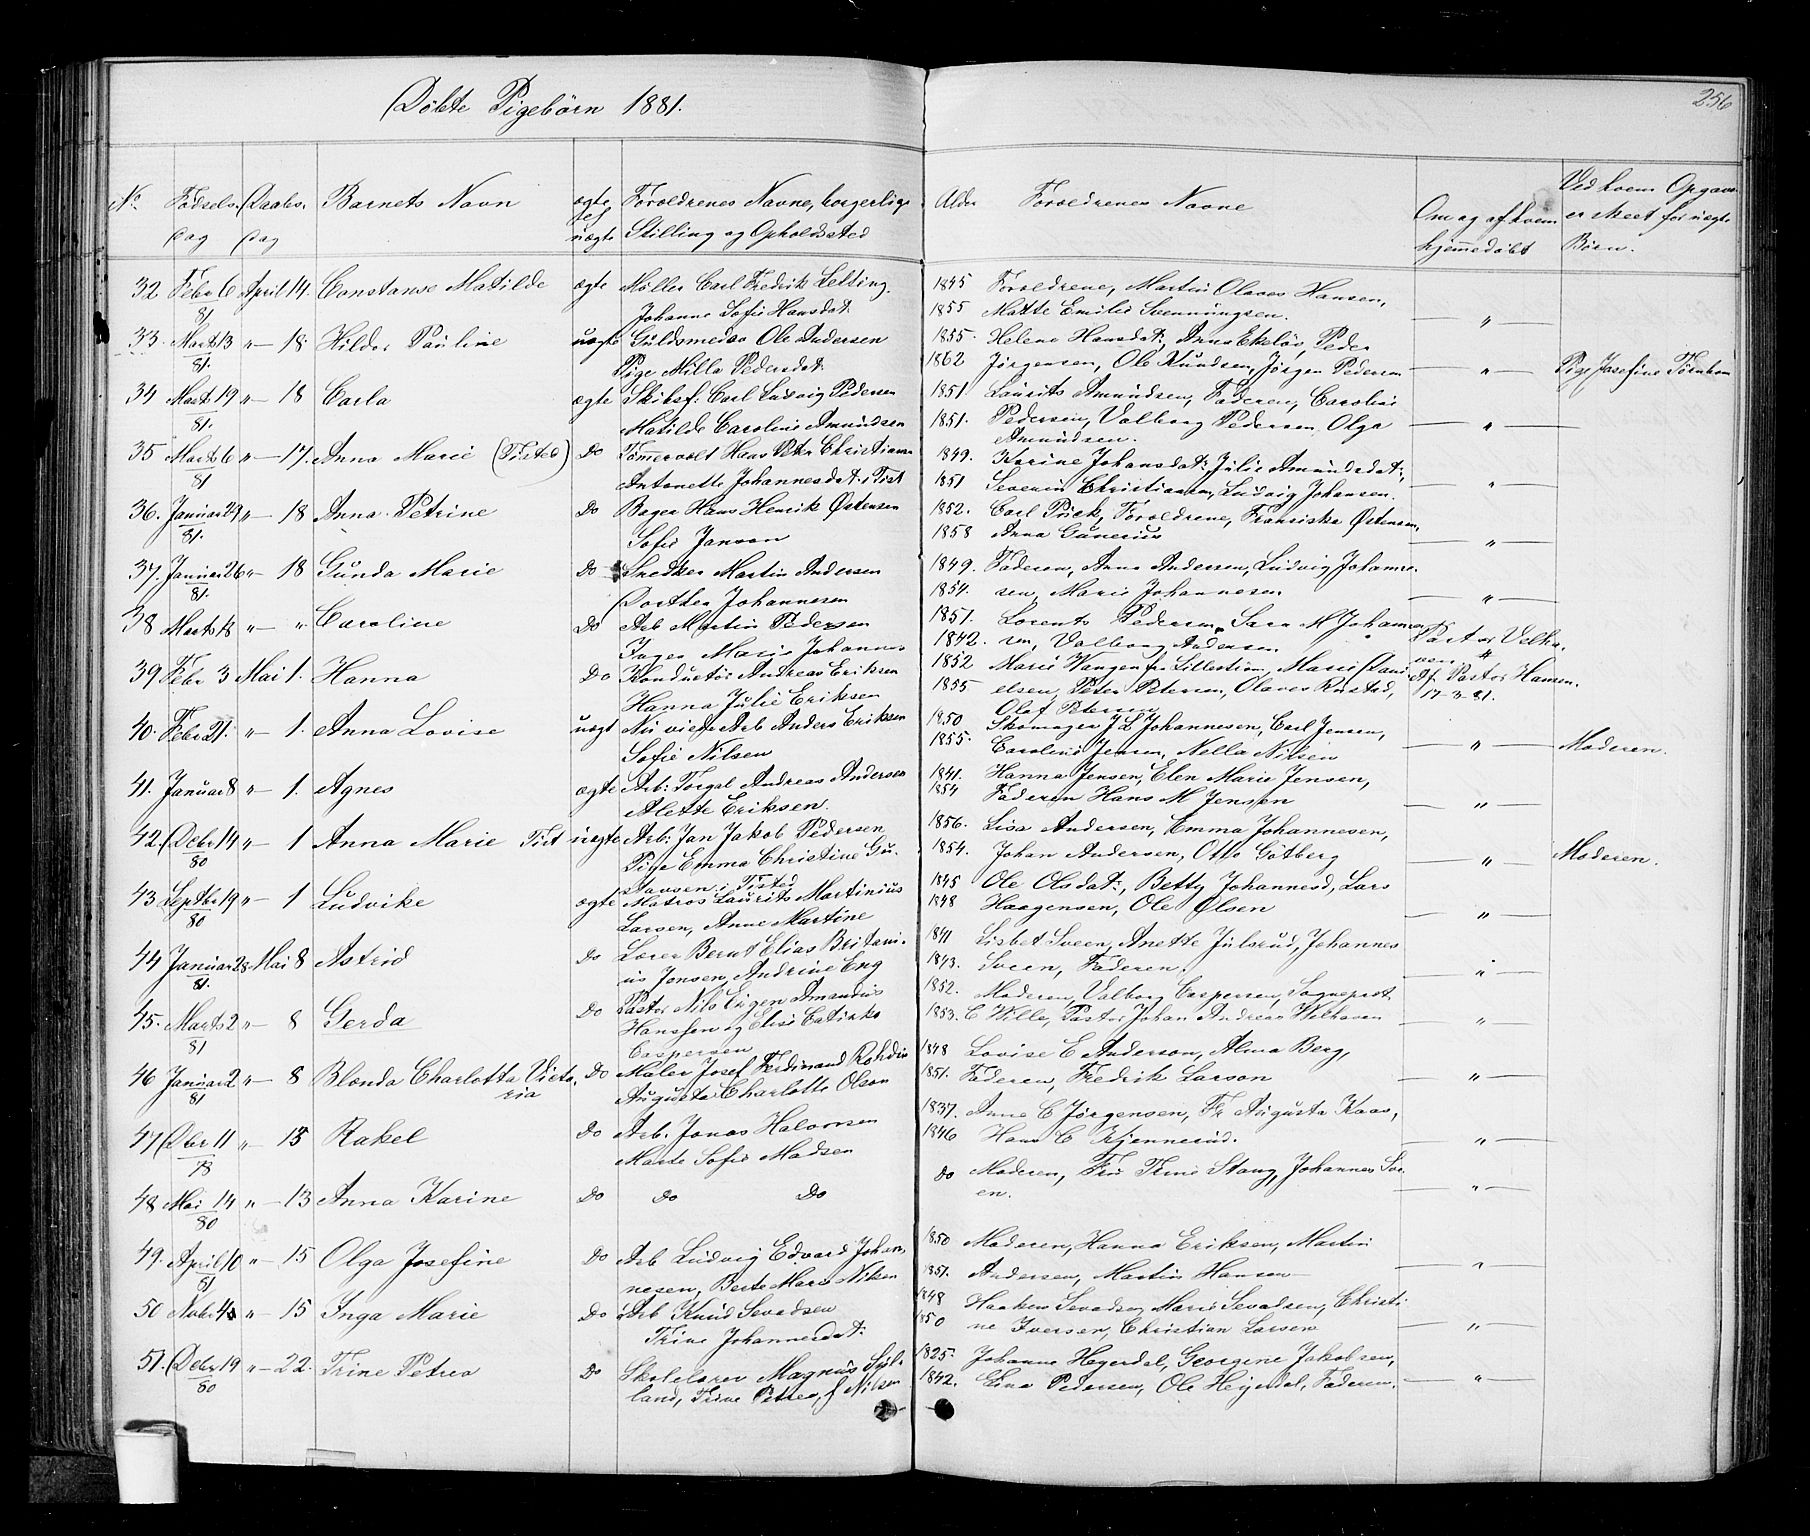 Døbte Pigebørn 1881.
256
No. Fødsels Daabs Barnets Navn ægte Forældrenes Navne, borgerlige Alder Forældrenes Navne Ved hvem Opgave
dag dag uægte Stilling og Opholdssted Om og af hvem er skeet for uægte
hjemmedøbt Børn.
32 Febr 6 April 14. Constanse Matilde ægte Møller Carl Fredrik Letting. 1845 Forældrene, Martin Olaves Hansen,
81 Johanne Sofie Hansdat: 1855 Matte Emilie Svenningsen. — " —
33. Marts 13 " — 18. Hilder Pauline uægte Guldsmedsv Ole Andersen 1855. Helene Hansdat:, Anna Ekeløs, Peder
81. Pige Milla Pedersdat: 1862 Jørgensen, Ole Knudsen, Jørgen Pedersen — " — Pige Josefine Tørnbom
34 Marts 19 " — 18 Carla ægte Skibsf: Carl Ludvig Pedersen 1851 Laurits Amundsen, Faderen, Caroline
81. Matilde Caroline Amundsen 1851. Pedersen, Valborg Pedersen, Olga — " —
Amundsen.
35 Marts 6 " — 17. Anna Marie (Tisted) Do Tømmervolt Hans Peter Christiansen 1849. Karine Johansdat: Julie Amundsdat:,
81 Antonette Johannesdat: i Tist 1851 Severin Christiansen, Ludvig Johansen. — " —
36. Januar 29 " — 18 Anna Petrine Do Bager Hans Henrik Østensen 1852. Carl Prick, Forældrene, Fransiska Østensen,
81. Sofie Janson 1858 Anna Gunerius — " —
37. Januar 26 " — 18 Gunda Marie Do Snedker Martin Andersen 1849. Faderen, Anna Andersen, Ludvig Johanne-
81. Dorthea Johannesen 1854. sen, Marie Johannesen. — " —
38 Marts 18 " — " Caroline Do Arb Martin Pedersen 1851. Lorents Pedersen, Sara M Johannesen
Inger Marie Johannes 1842. sen, Valborg Andersen. Pastor Velha-
ven
39 Febr 3 Mai 1. Hanna Do Konduetør Andreas Eriksen 1852 Marie Wangen fr Lillestrøm, Marie Dani Af Pastor Hansen.
Hanna Julie Eriksen 1855 elsen, Peter Petersen, Olaves Rustad, 17-3-81.
Olaf Petersen
40. Febr 21. " — 1. Anna Lovise uægt Nu viede Arb Anders Eriksen 1850 Skomager J L Johannesen, Carl Jensen,
Sofie Nilsen 1855. Caroline Jensen, Nella Nilsen — " — Moderen.
41. Januar 8 " — 1. Agnes ægte Arb: Torgal Andreas Andersen 1841. Hanna Jensen, Elen Marie Jensen,
Alette Eriksen. 1854 Faderen Hans M Jensen — " —
42. Debr 14 " — 1 Anna Marie Tist uægte Arb: Jan Jakob Pedersen 1856. Lisa Andersen, Emma Johannesen,
80 Pige Emma Christine Gu- 1854. Johan Andersen, Otto Götberg — " — Moderen.
stavsen i Tisted
43 Septbr 19 " — 1 Ludvike ægte Matros Laurits Martinius 1845 Ole Olsdat:, Betty Johannesd, Lars
80 Larsen, Anne Martine 1848 Haagensen, Ole Olsen — " —
44 Januar 28 Mai 8 Astrid Do Lærer Bernt Elias Britani- 1841 Lisbet Sveen, Anette Julsrud, Johannes
81. us Jensen, Andrine Eng 1843. Sveen, Faderen. — " —
45. Marts 2 " — 8 Gerda Do Pastor Nils Eigen Amandus 1852. Moderen, Valborg Caspersen, Sognepræst
81 Hanssen og Elise Catinka 1853. C Wille, Pastor Johan Andreas Welhaven — " —
Caspersen
46 Januar 2 " — 8 Blænda Charlotta Victo- Do Maler Josef Ferdinand Rohdin 1848 Lovise E Anderson, Alma Berg,
81 ria Augusta Charlotte Olson 1851. Faderen, Fredrik Larson — " —
47 Dbr 11 " — 13 Rakel Do Arb. Jonas Halvorsen 1837. Anne C Jørgensen, Fr Augusta Kaas,
78 Marte Sofie Madsen 1846 Hans C Kjennerud. — " —
48 Mai 14 " — 13 Anna Karine Do Do Do Do Moderen, Frü Trine Stang, Johannes Sve-
80 en. — " —
49. April 10 " — 15 Olga Josefine Do Arb Ludvig Edvard Johan- 1850 Moderen, Hanna Eriksen, Martin
81 nesen, Berte Marie Nilsen 1851. Andersen, Martin Hansen — " —
50 Nvbr 4 " — 15 Inga Marie Do Arb Knud Sevadsen 1848 Haaken Sevadsen, Marie Sevadsen, Christi
Trine Johannesdat: 1850 ne Iversen, Christian Larsen — " —
51. Debr 19 " — 22. Trine Petrea Do Skolelærer Magnus Syl- 1825. Johanne Hegerdal, Georgene Jakobsen,
80 land, Trine Petrea, f Nilsen 1842. Lina Pedersen, Ole Hejerdal, Faderen. — " —